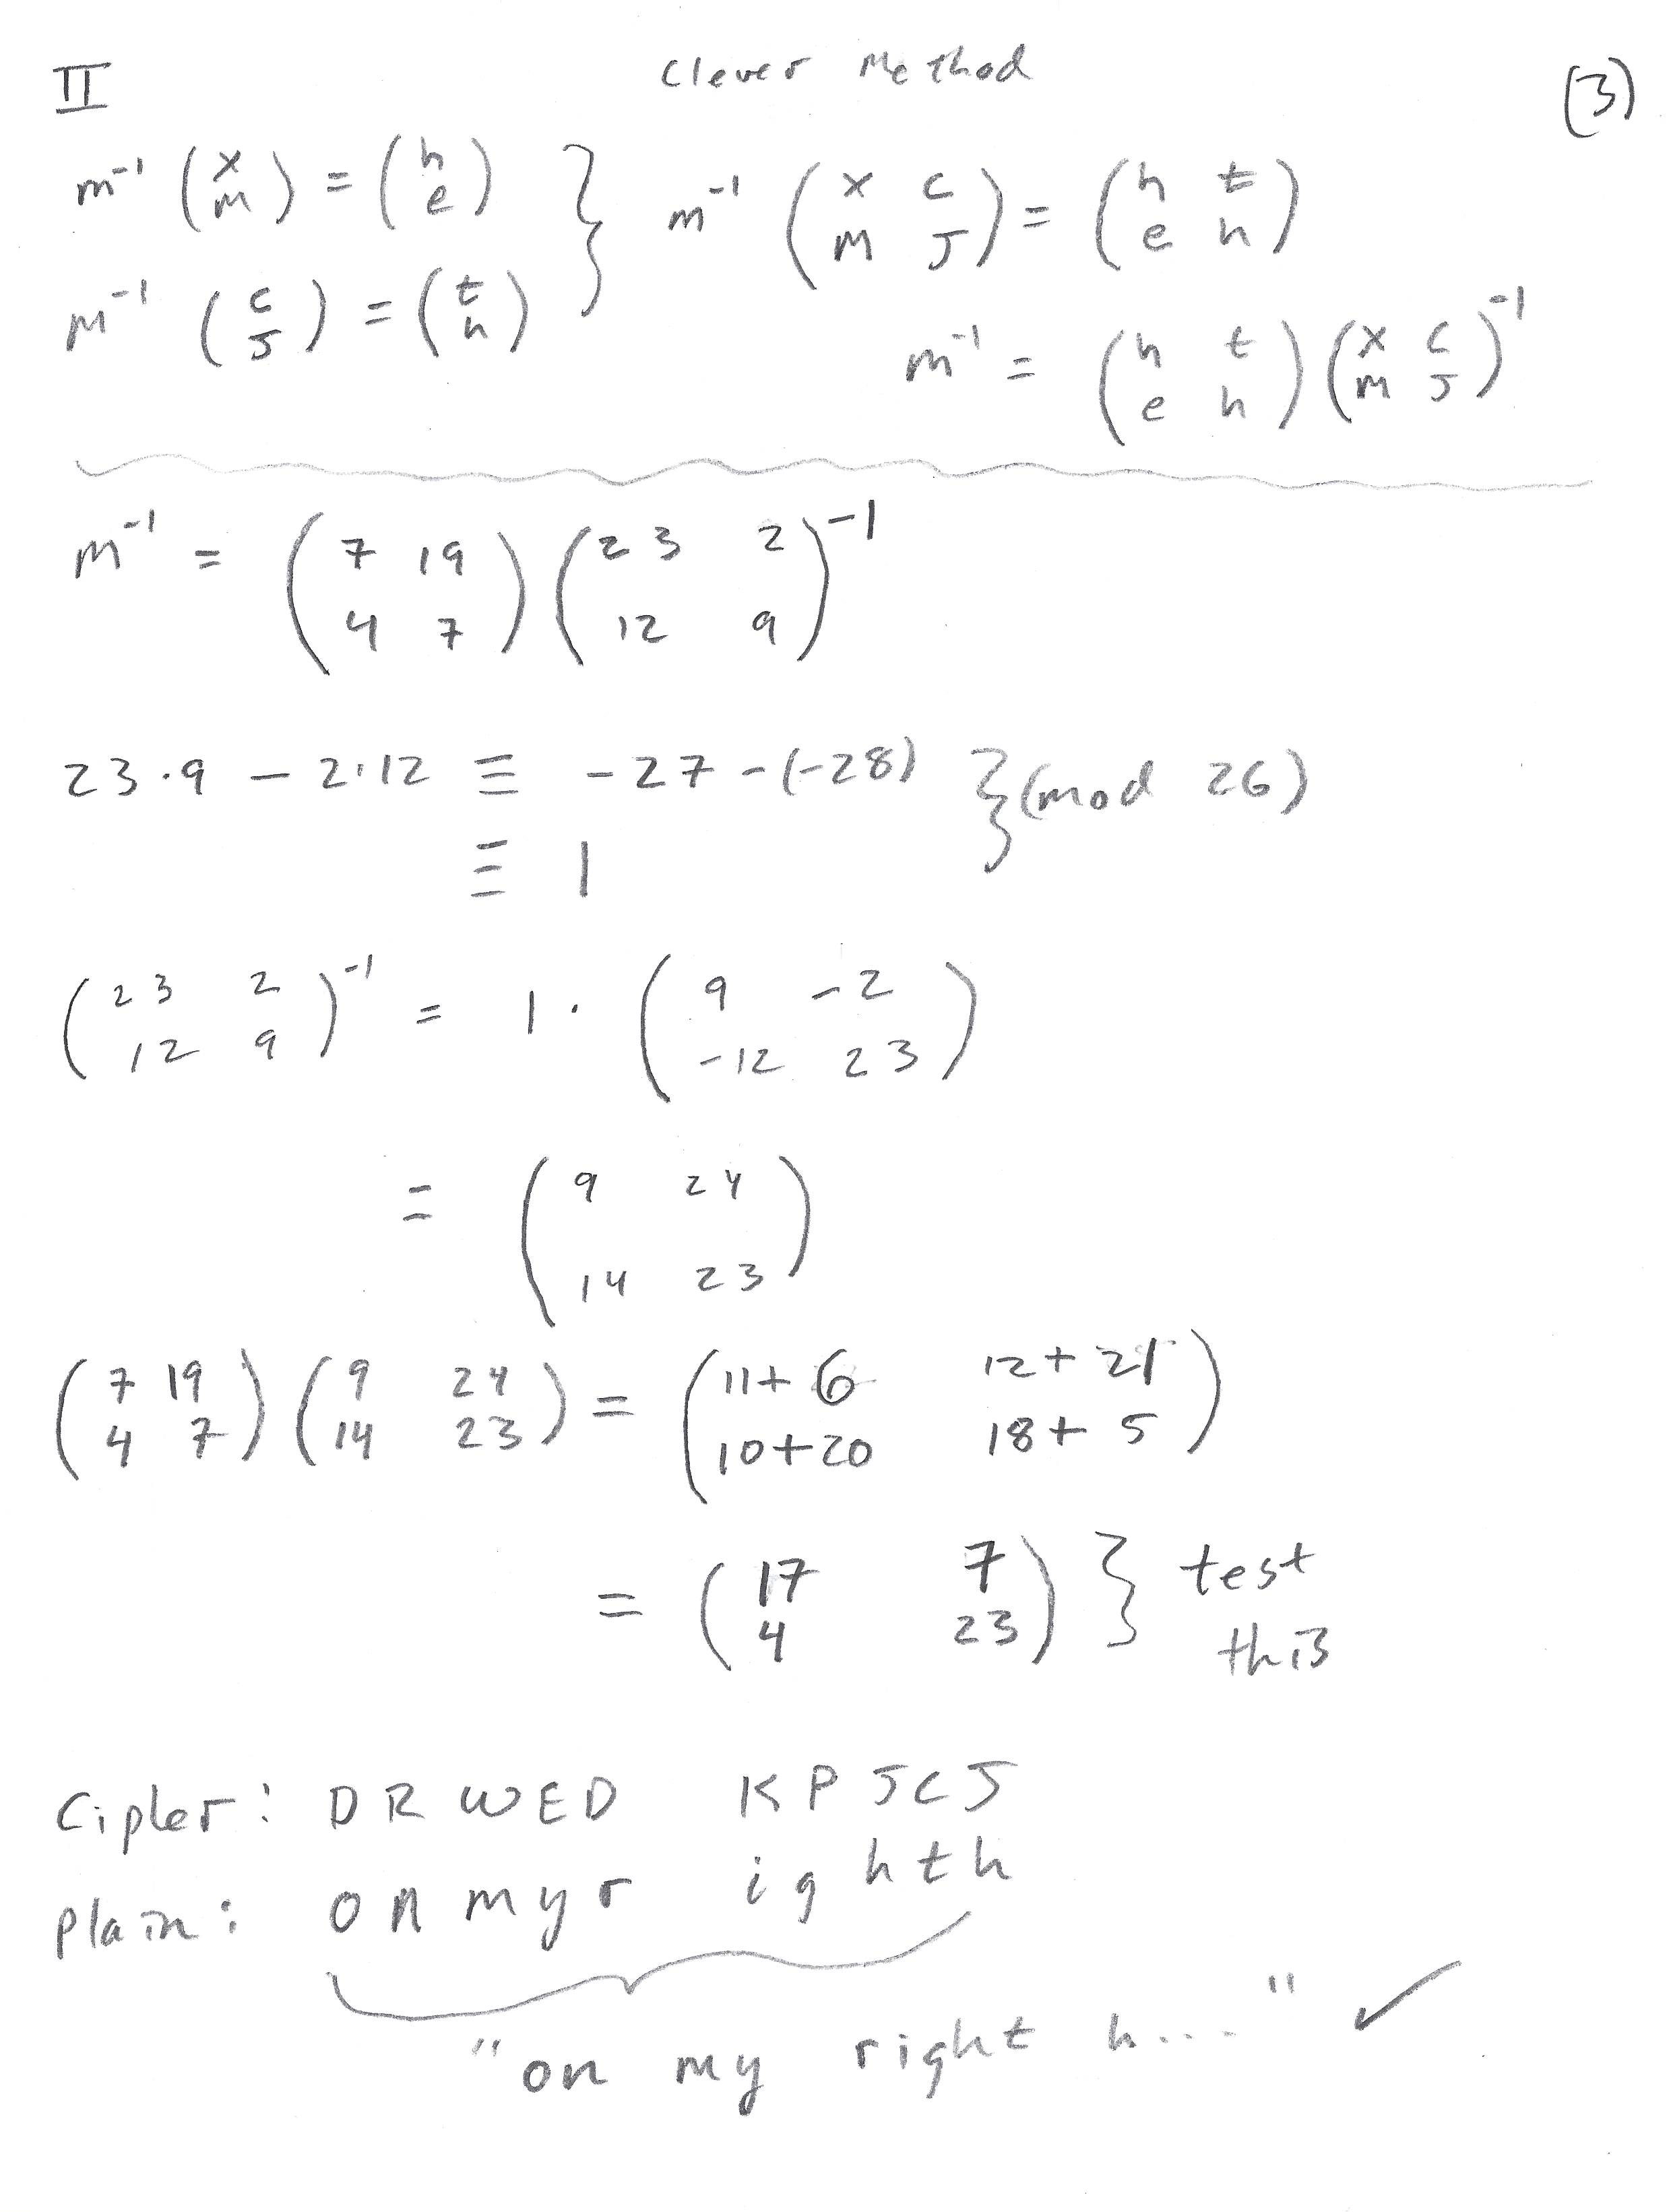 II Clever Method (3)
m⁻¹ (x m) = (h e) } m⁻¹ (x c m J) = (h t e h)
m⁻¹ (c J) = (t h)
m⁻¹ = (h t e h) (x c m J)⁻¹
m⁻¹ = (7 19 4 7) (23 2 12 9)⁻¹
23·9 − 2·12 ≡ −27 −(−28) } (mod 26)
≡ 1
(23 2 12 9)⁻¹ = 1 · (9 −2 −12 23)
= (9 24 14 23)
(7 19 4 7) (9 24 14 23) = (11+6 12+21 10+20 18+5)
= (17 7 4 23) } test this
Cipler: DRWED KPJCJ
Plain: onmyr ighth
"on my right h...." ✓